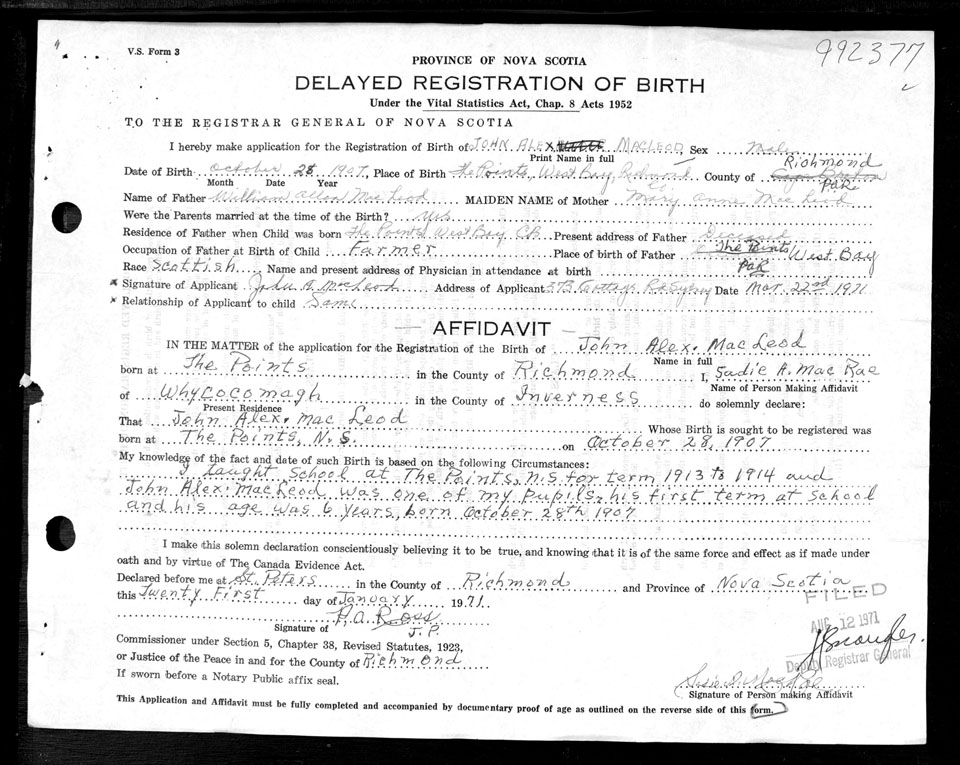 992377
V.S. Form 3
PROVINCE OF NOVA SCOTIA
DELAYED REGISTRATION OF BIRTH
Under the Vital Statistics Act, Chap. 8 Acts 1952
TO THE REGISTRAR GENERAL OF NOVA SCOTIA
I hereby make application for the Registration of Birth of JOHN ALEX MACLEOD Sex Male
Print Name in full
Richmond
Date of Birth October 28 1907 Place of Birth The Points, West Bay, Richmond County of Cape Breton
Month Date Year
Name of Father William Allan MacLeod MAIDEN NAME of Mother Mary Anne MacLeod
Were the Parents married at the time of Birth? yes
Residence of Father when Child was born The Points West Bay CB Present address of Father Deceased
Occupation of Father at Birth of Child Farmer Place of birth of Father The Points West Bay
Race Scottish Name and present address of Physician in attendance at birth
Signature of Applicant John A. MacLeod Address of Applicant 373 Cottage Rd Sydney Date Mar 22nd 1971
Relationship of Applicant to child Same
AFFIDAVIT
IN THE MATTER of the application for the Registration of the Birth of John Alex. MacLeod
Name in full
born at The Points in the County of Richmond I, Sadie A. MacRae
Name of Person Making Affidavit
of Whycocomagh in the County of Inverness do solemnly declare:
Present Residence
That John Alex. MacLeod Whose Birth is sought to be registered was
born at The Points, N.S. on October 28, 1907
My knowledge of the fact and date of such Birth is based on the following Circumstances:
I taught School at The Points, N.S for term 1913 to 1914 and
John Alex. MacLeod was one of my pupils, his first term at school
and his age was 6 years, born October 28th 1907
I make this solemn declaration conscientiously believing it to be true, and knowing that it is of the same force and effect as if made under
oath and by virtue of The Canada Evidence Act.
Declared before me at St. Peters in the County of Richmond and Province of Nova Scotia
this Twenty First day of January 1971
FILED
AUG 12 1971
Deputy Registrar General
Signature of A.O. Ross
J.P.
Commissioner under Section 5, Chapter 38, Revised Statutes, 1923,
or Justice of the Peace in and for the County of Richmond
If sworn before a Notary Public affix seal.
Signature of Person making Affidavit
This Application and Affidavit must be fully completed and accompanied by documentary proof of age as outlined on the reverse side of this form.